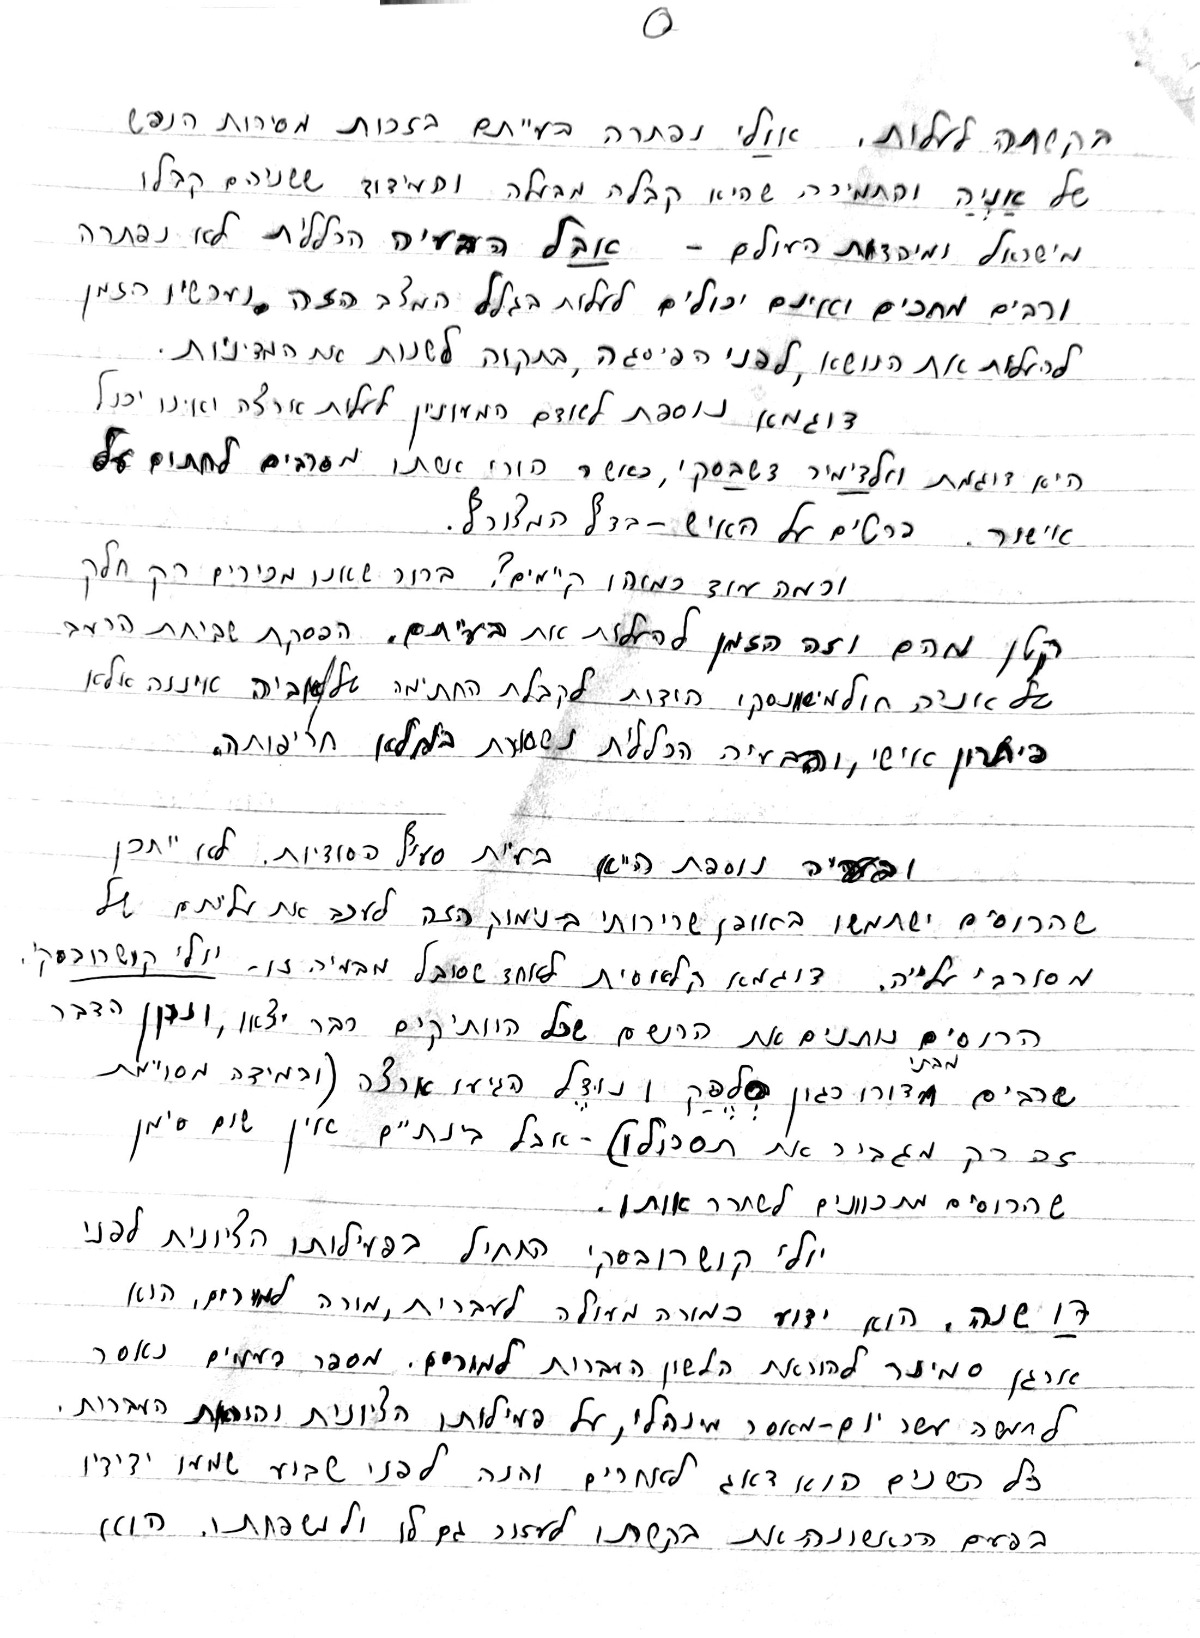 בקשתה לעלות. אולי נפתרה בעייתם בזכות מסירות הנפש
של אַנְיָה והתמיכה שהיא קבלה מבעלה והעידוד ששניהם קבלו
מישראל ומיהדות העולם – אבל הבעיה הכללית לא נפתרה
ורבים מחכים ואינם יכולים לעלות בגלל המצב הזה. ועכשיו הזמן
להעלות את הנושא, לפני הפיסגה, בתקוה לשנות את המדיניות.
דוגמא נוספת לאדם המעוניין לעלות ארצה ואינו יכול
היא דוגמת ולדימיר דשבסקי, כאשר הורי אשתו מסרבים לחתום על
אישור. פרטים על האיש – בדף המצורף.
וכמה עוד כמאהו קיימים? ברור שאנו מכירים רק חלק
קטן מהם וזה הזמן להעלות את בעייתם. הפסקת שביתת הרעב
של אניה חולמיאנסקי הודות לקבלת החתימה של אביה איננה אלא
פיתרון אישי, והבעיה הכללית נשמעת במלא חריפותה.
ובעיה נוספת היא בעית סעיף הסודיות. לא ייתכן
שהרוסים ישתמשו באופן שרירותי ב-נימוק הזה לעכב את עליתם של
מסורבי עלייה. דוגמא קלאסית לאחד שסובל מבעיה זו – יולי קושרובסקי.
הרוסים נותנים את הרושם שכל הוותיקים כבר יצאו, ונכון הדבר
שרבים מבני דורו כגון סְלֶפַּק ו נוּדֶל הגיעו ארצה (ובמידה מסויימת
זה רק מגביר את תסכולו) – אבל בינתיים אין שום סימן
שהרוסים מתכוונים לשחרר אותו.
יולי קושרובסקי התחיל בפעילותו הציונית לפני
17 שנה. הוא ידוע כמורה מעולה לעברית, מורה למורים. הוא
ארגן סמינר להוראת הלשון העברות למורים. מספר פעמים נאסר
לחמשה עשר יום-מאסר מינהלי, על פעילותו הציונית והוראת העברות.
כל השנים הוא דאג לאחרים והנה לפני שבוע שמעו ידידיו
בפעם הראשונה את בקשתו לעזור גם לו ולמשפחתו. הוא